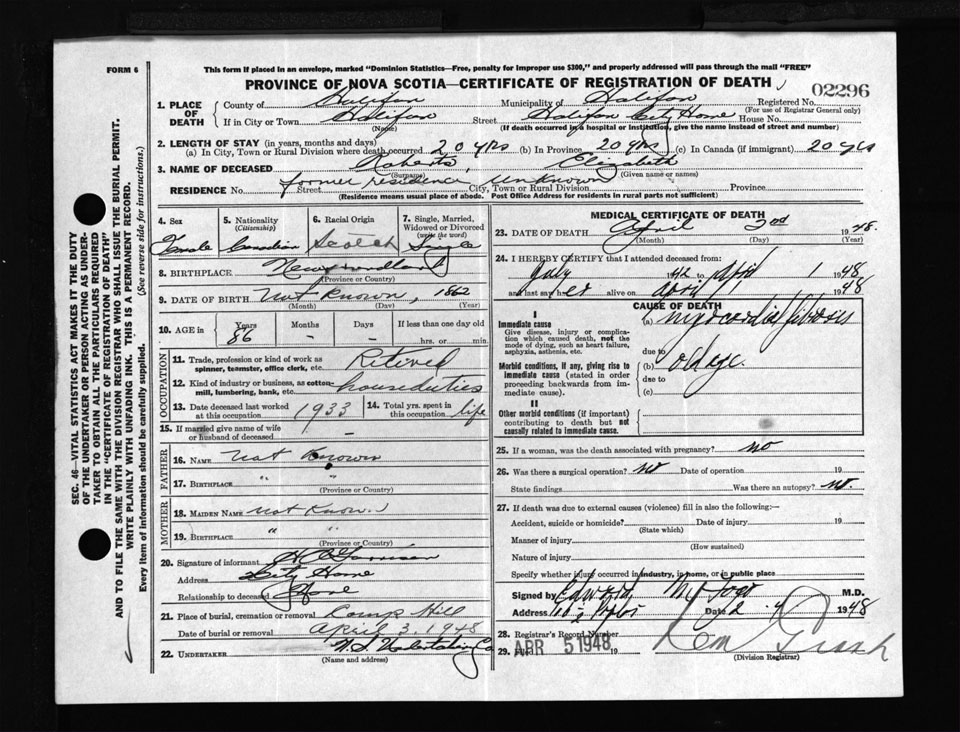 FORM 6
This form if placed in an envelope, marked "Dominion Statistics—Free, penalty for improper use $300," and properly addressed will pass through the mail "FREE"
PROVINCE OF NOVA SCOTIA—CERTIFICATE OF REGISTRATION OF DEATH
02296
1. PLACE OF DEATH
County of Halifax Municipality of Halifax Registered No.
(For use of Registrar General only)
If in City or Town Halifax Street Halifax City Home House No.
(Name) (If death occurred in a hospital or institution, give the name instead of street and number)
2. LENGTH OF STAY (in years, months and days)
(a) In City, Town or Rural Division where death occurred 20 yrs (b) In Province 20 yrs (c) In Canada (if immigrant) 20 yrs
3. NAME OF DECEASED Roberts, Elizabeth
(Surname) (Given name or names)
RESIDENCE No. former residence unknown Street City, Town or Rural Division Province
(Residence means usual place of abode. Post Office Address for residents in rural parts not sufficient)
4. Sex Female
5. Nationality (Citizenship) Canadian
6. Racial Origin Scotch
7. Single, Married, Widowed or Divorced (write the word) Single
8. BIRTHPLACE Newfoundland
(Province or Country)
9. DATE OF BIRTH Not known, 1862
(Month) (Day) (Year)
10. AGE in Years 86 Months – Days – If less than one day old
hrs. or min.
OCCUPATION
11. Trade, profession or kind of work as spinner, teamster, office clerk, etc. Retired
12. Kind of industry or business, as cotton-mill, lumbering, bank, etc. house duties
13. Date deceased last worked at this occupation 1933
14. Total yrs. spent in this occupation life
15. If married give name of wife or husband of deceased –
FATHER
16. NAME Not known
17. BIRTHPLACE " "
(Province or Country)
MOTHER
18. MAIDEN NAME Not known
19. BIRTHPLACE " "
(Province or Country)
20. Signature of informant
Address City Home
Relationship to deceased None
21. Place of burial, cremation or removal Camp Hill
Date of burial or removal April 3, 1948
22. UNDERTAKER N.S. Undertaking Co
(Name and address)
MEDICAL CERTIFICATE OF DEATH
23. DATE OF DEATH April 2nd 1948.
(Month) (Day) (Year)
24. I HEREBY CERTIFY that I attended deceased from:
July 1942 to April 1 1948
and last saw her alive on April 1 1948
CAUSE OF DEATH
I
Immediate cause
Give disease, injury or complication which caused death, not the mode of dying, such as heart failure, asphyxia, asthenia, etc.
(a) myocardial fibrosis
due to
Morbid conditions, if any, giving rise to immediate cause (stated in order proceeding backwards from immediate cause).
(b) old age.
due to
(c)
II
Other morbid conditions (if important) contributing to death but not causally related to immediate cause.
25. If a woman, was the death associated with pregnancy? no
26. Was there a surgical operation? no Date of operation 19
State findings Was there an autopsy? no.
27. If death was due to external causes (violence) fill in also the following:—
Accident, suicide or homicide? Date of injury 19
(State which)
Manner of injury
(How sustained)
Nature of injury
Specify whether injury occurred in industry, in home, or in public place
Signed by Edward M. M.D.
Address Date 2. 4 1948
28. Registrar's Record Number
29. APR 5 1948 19
(Division Registrar)
SEC. 46—VITAL STATISTICS ACT MAKES IT THE DUTY
OF THE UNDERTAKER OR PERSON ACTING AS UNDERTAKER
TO OBTAIN ALL THE PARTICULARS REQUIRED
IN THE "CERTIFICATE OF REGISTRATION OF DEATH"
AND TO FILE THE SAME WITH THE DIVISION REGISTRAR WHO SHALL ISSUE THE BURIAL PERMIT.
WRITE PLAINLY WITH UNFADING INK. THIS IS A PERMANENT RECORD.
Every item of information should be carefully supplied. (See reverse side for instructions.)